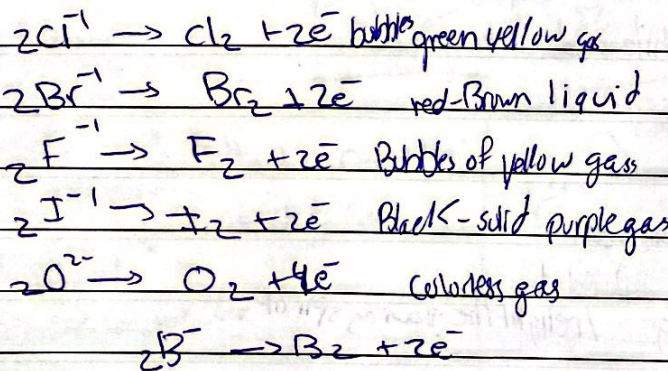 2Cl⁻¹ → Cl₂ + 2e⁻ bubbles green yellow gas
2Br⁻¹ → Br₂ + 2e⁻ red-Brown liquid
2F⁻¹ → F₂ + 2e⁻ Bubbles of yellow gass
2I⁻¹ → I₂ + 2e⁻ Black-solid purple gas
2O²⁻ → O₂ + 4e⁻ colorless gas
2B⁻ → B2 + 2e⁻